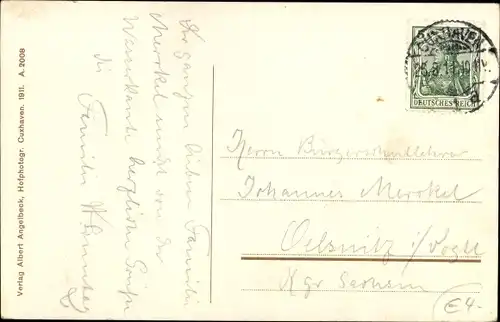 Verlag Albert Angelbeck, Hofphotogr. Cuxhaven. 1911. A. 2008
Der ganzen lieben Familie
Merckel sendet von der
Wasserkante herzliche Grüße
die Familie
CUXHAVEN
DEUTSCHES REICH
Herrn Bürgerschullehrer
Johannes Merckel
Oelsnitz i/Vogtl
Kgr Sachsen
€4-